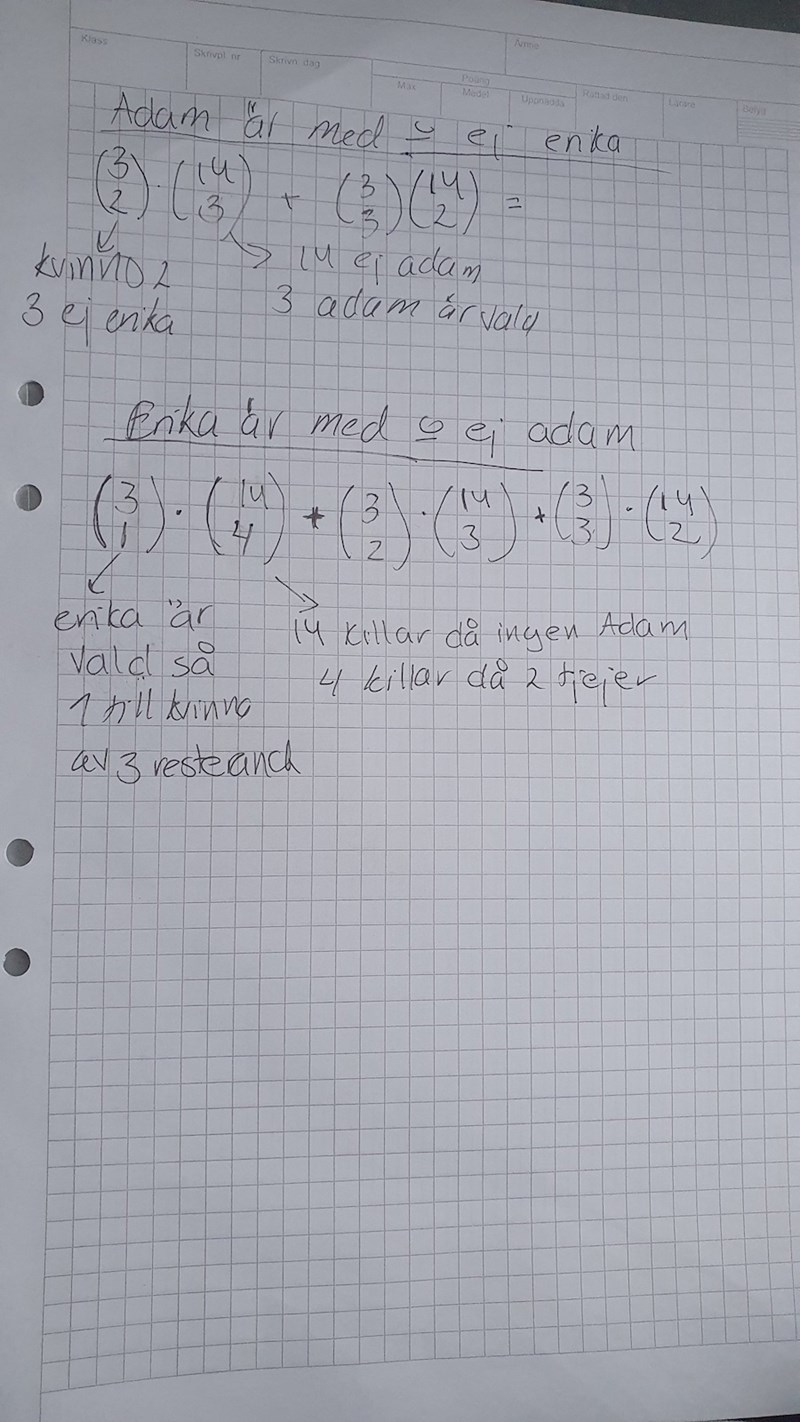 Klass
Skrivpl nr
Skrivn dag
Ämne
Poäng
Max
Medel
Uppnådda
Rättad den
Lärare
Betyg
Adam är med och ej erika
(3 2) · (14 3) + (3 3)(14 2) =
kvinno 2
3 ej erika
14 ej adam
3 adam är vald
Erika är med och ej adam
(3 1) · (14 4) + (3 2) · (14 3) + (3 3) · (14 2)
erika är
vald så
1 till kvinno
av 3 resteand
14 killar då ingen Adam
4 killar då 2 tjejer